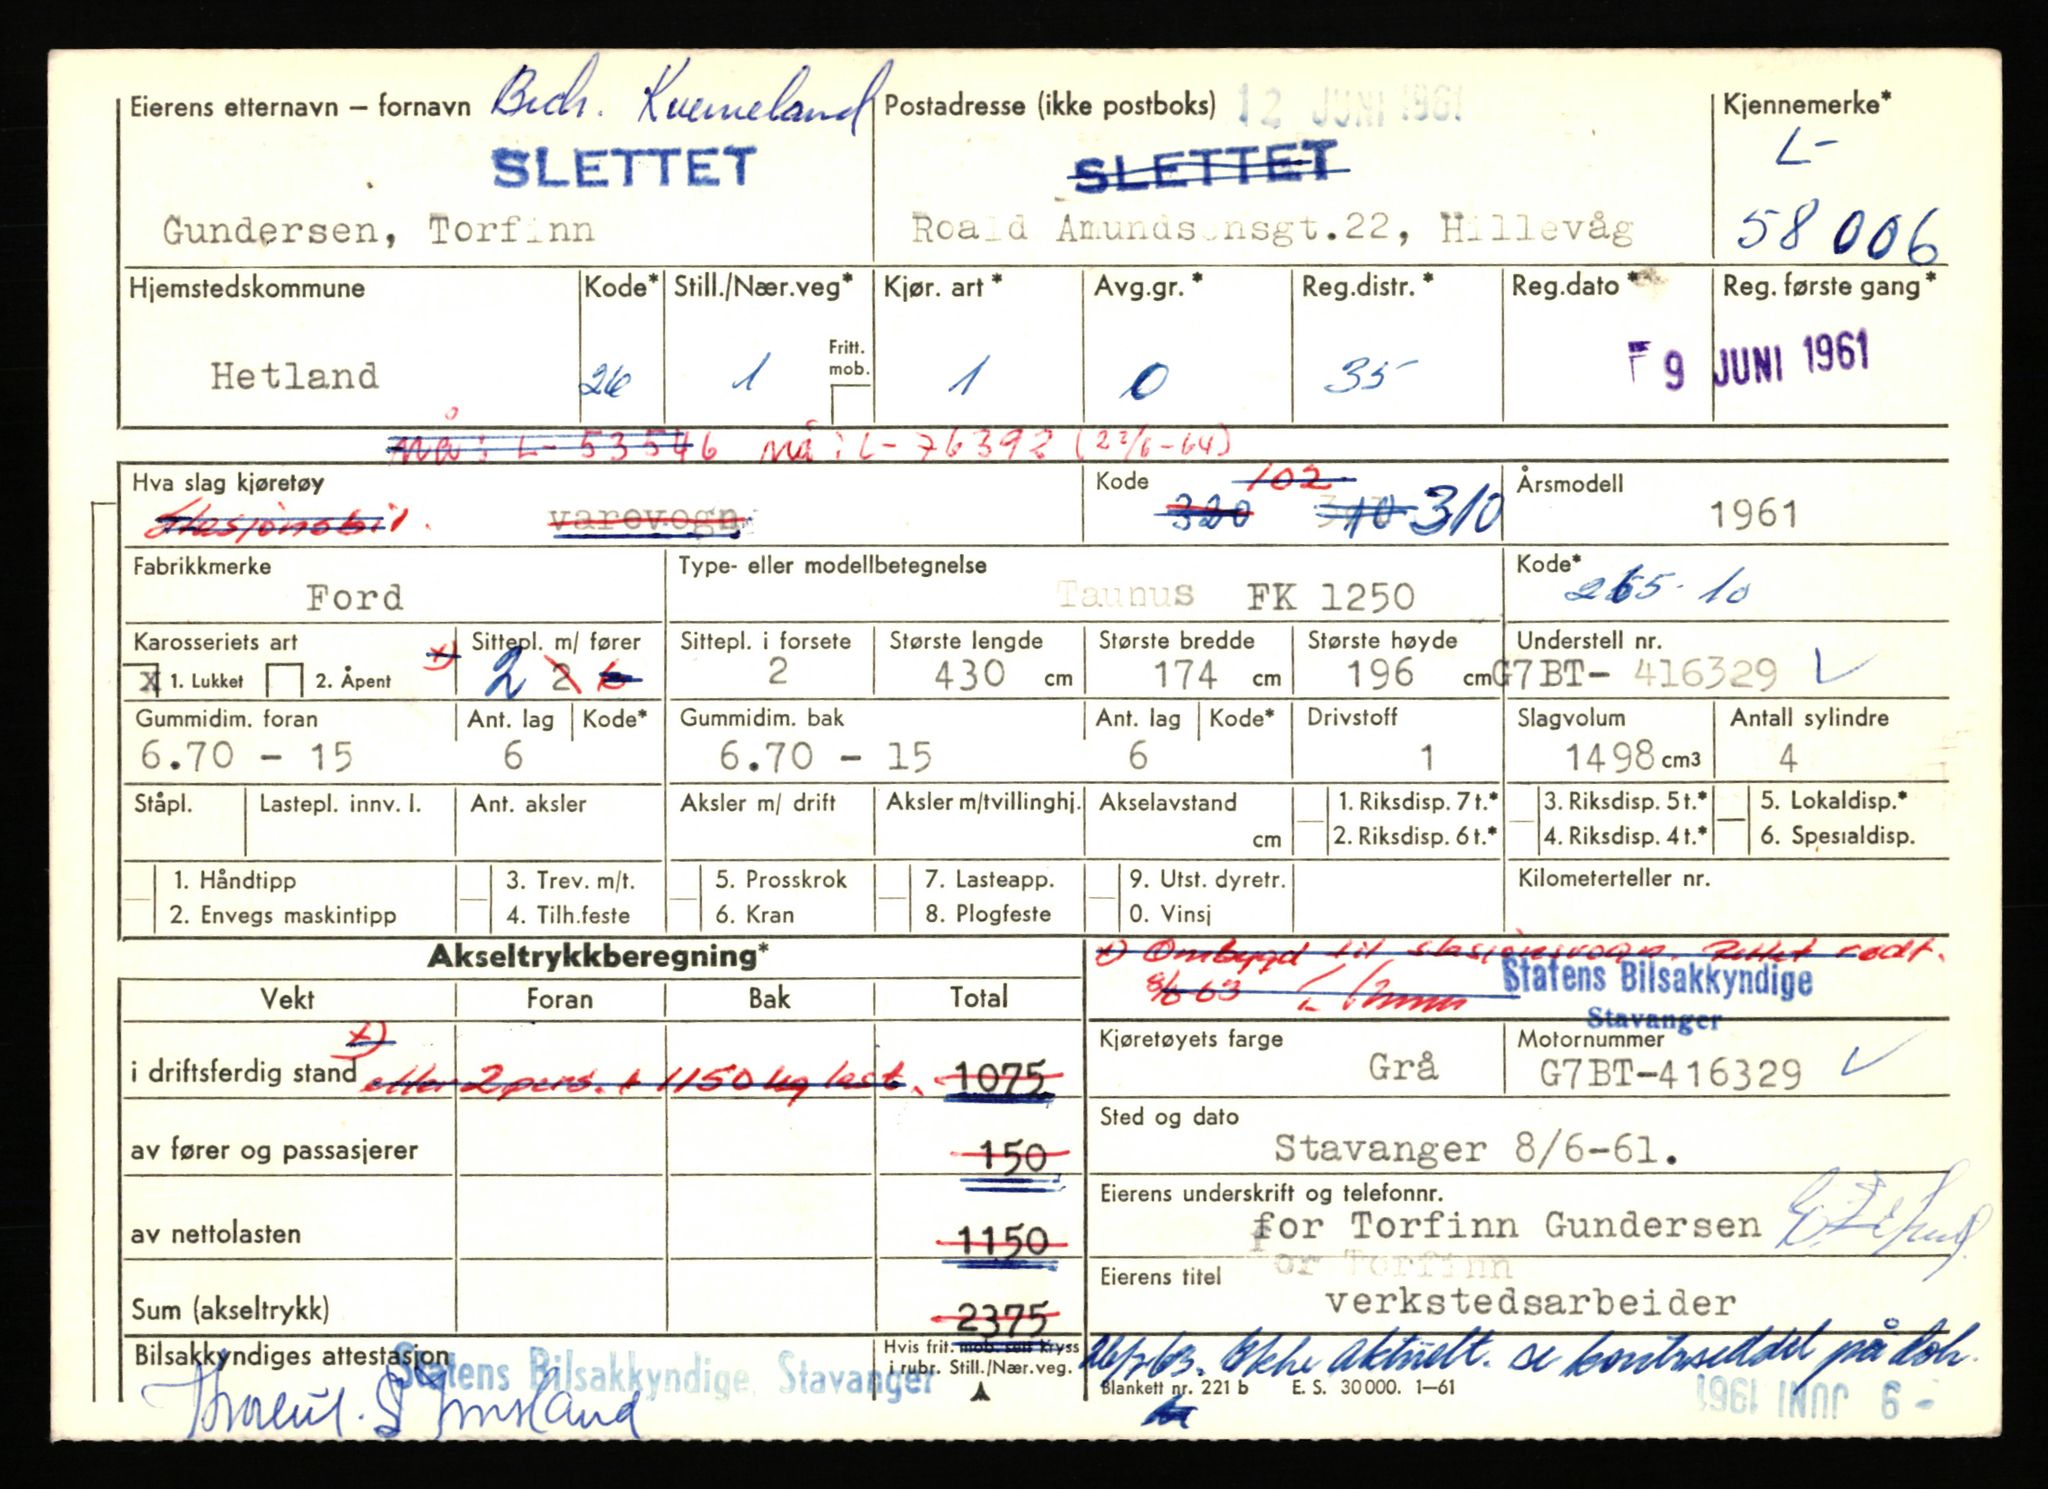 Eierens etternavn – fornavn Brdr. Kverneland Postadresse (ikke postboks) 12 JUNI 1961 Kjennemerke*
SLETTET SLETTET L-
Gundersen, Torfinn Roald Amundsensgt.22, Hillevåg 58006
Hjemstedskommune Kode* Still./Nær.veg* Kjør. art* Avg.gr.* Reg.distr.* Reg.dato* Reg. første gang*
Fritt. mob.
Hetland 26 1 1 0 35 9 JUNI 1961
Nå: L-53546 nå: L-76392 (22/6-64)
Hva slag kjøretøy Kode 102 Årsmodell
Stasjonsbil. varevogn 320 310 310 1961
Fabrikkmerke Type- eller modellbetegnelse Kode*
Ford Taunus FK 1250 265-10
Karosseriets art x) Sittepl. m/ fører Sittepl. i forsete Største lengde Største bredde Største høyde Understell nr.
X 1. Lukket 2. Åpent 2 2 2 430 cm 174 cm 196 cm G7BT- 416329
Gummidim. foran Ant. lag Kode* Gummidim. bak Ant. lag Kode* Drivstoff Slagvolum Antall sylindre
6.70 - 15 6 6.70 - 15 6 1 1498 cm3 4
Ståpl. Lastepl. innv. l. Ant. aksler Aksler m/ drift Aksler m/tvillinghj. Akselavstand cm 1. Riksdisp. 7 t.* 3. Riksdisp. 5 t.* 5. Lokaldisp.*
2. Riksdisp. 6 t.* 4. Riksdisp. 4 t.* 6. Spesialdisp.
1. Håndtipp 3. Trev. m/t. 5. Prosskrok 7. Lasteapp. 9. Utst. dyretr. Kilometerteller nr.
2. Envegs maskintipp 4. Tilh.feste 6. Kran 8. Plogfeste 0. Vinsj
Akseltrykkberegning* x) Ombygd til stasjonsvogn. Rettet rødt.
8/6 63 Statens Bilsakkyndige
Stavanger
Vekt Foran Bak Total
x)
i driftsferdig stand eller 2 pers. + 1150 kg last. 1075
Kjøretøyets farge Motornummer
Grå G7BT-416329
av fører og passasjerer 150
Sted og dato
Stavanger 8/6-61.
av nettolasten 1150
Eierens underskrift og telefonnr.
for Torfinn Gundersen
or Torfinn
Sum (akseltrykk) 2375
Eierens titel
verkstedsarbeider
Bilsakkyndiges attestasjon Statens Bilsakkyndige, Stavanger
Hvis frit. mob. sett kryss
i rubr. Still./Nær.veg.
26/7 63. Ikke aktuelt. se kontrseddel på dok.
Blankett nr. 221 b E. S. 30 000. 1–61
- 9 JUNI 1961